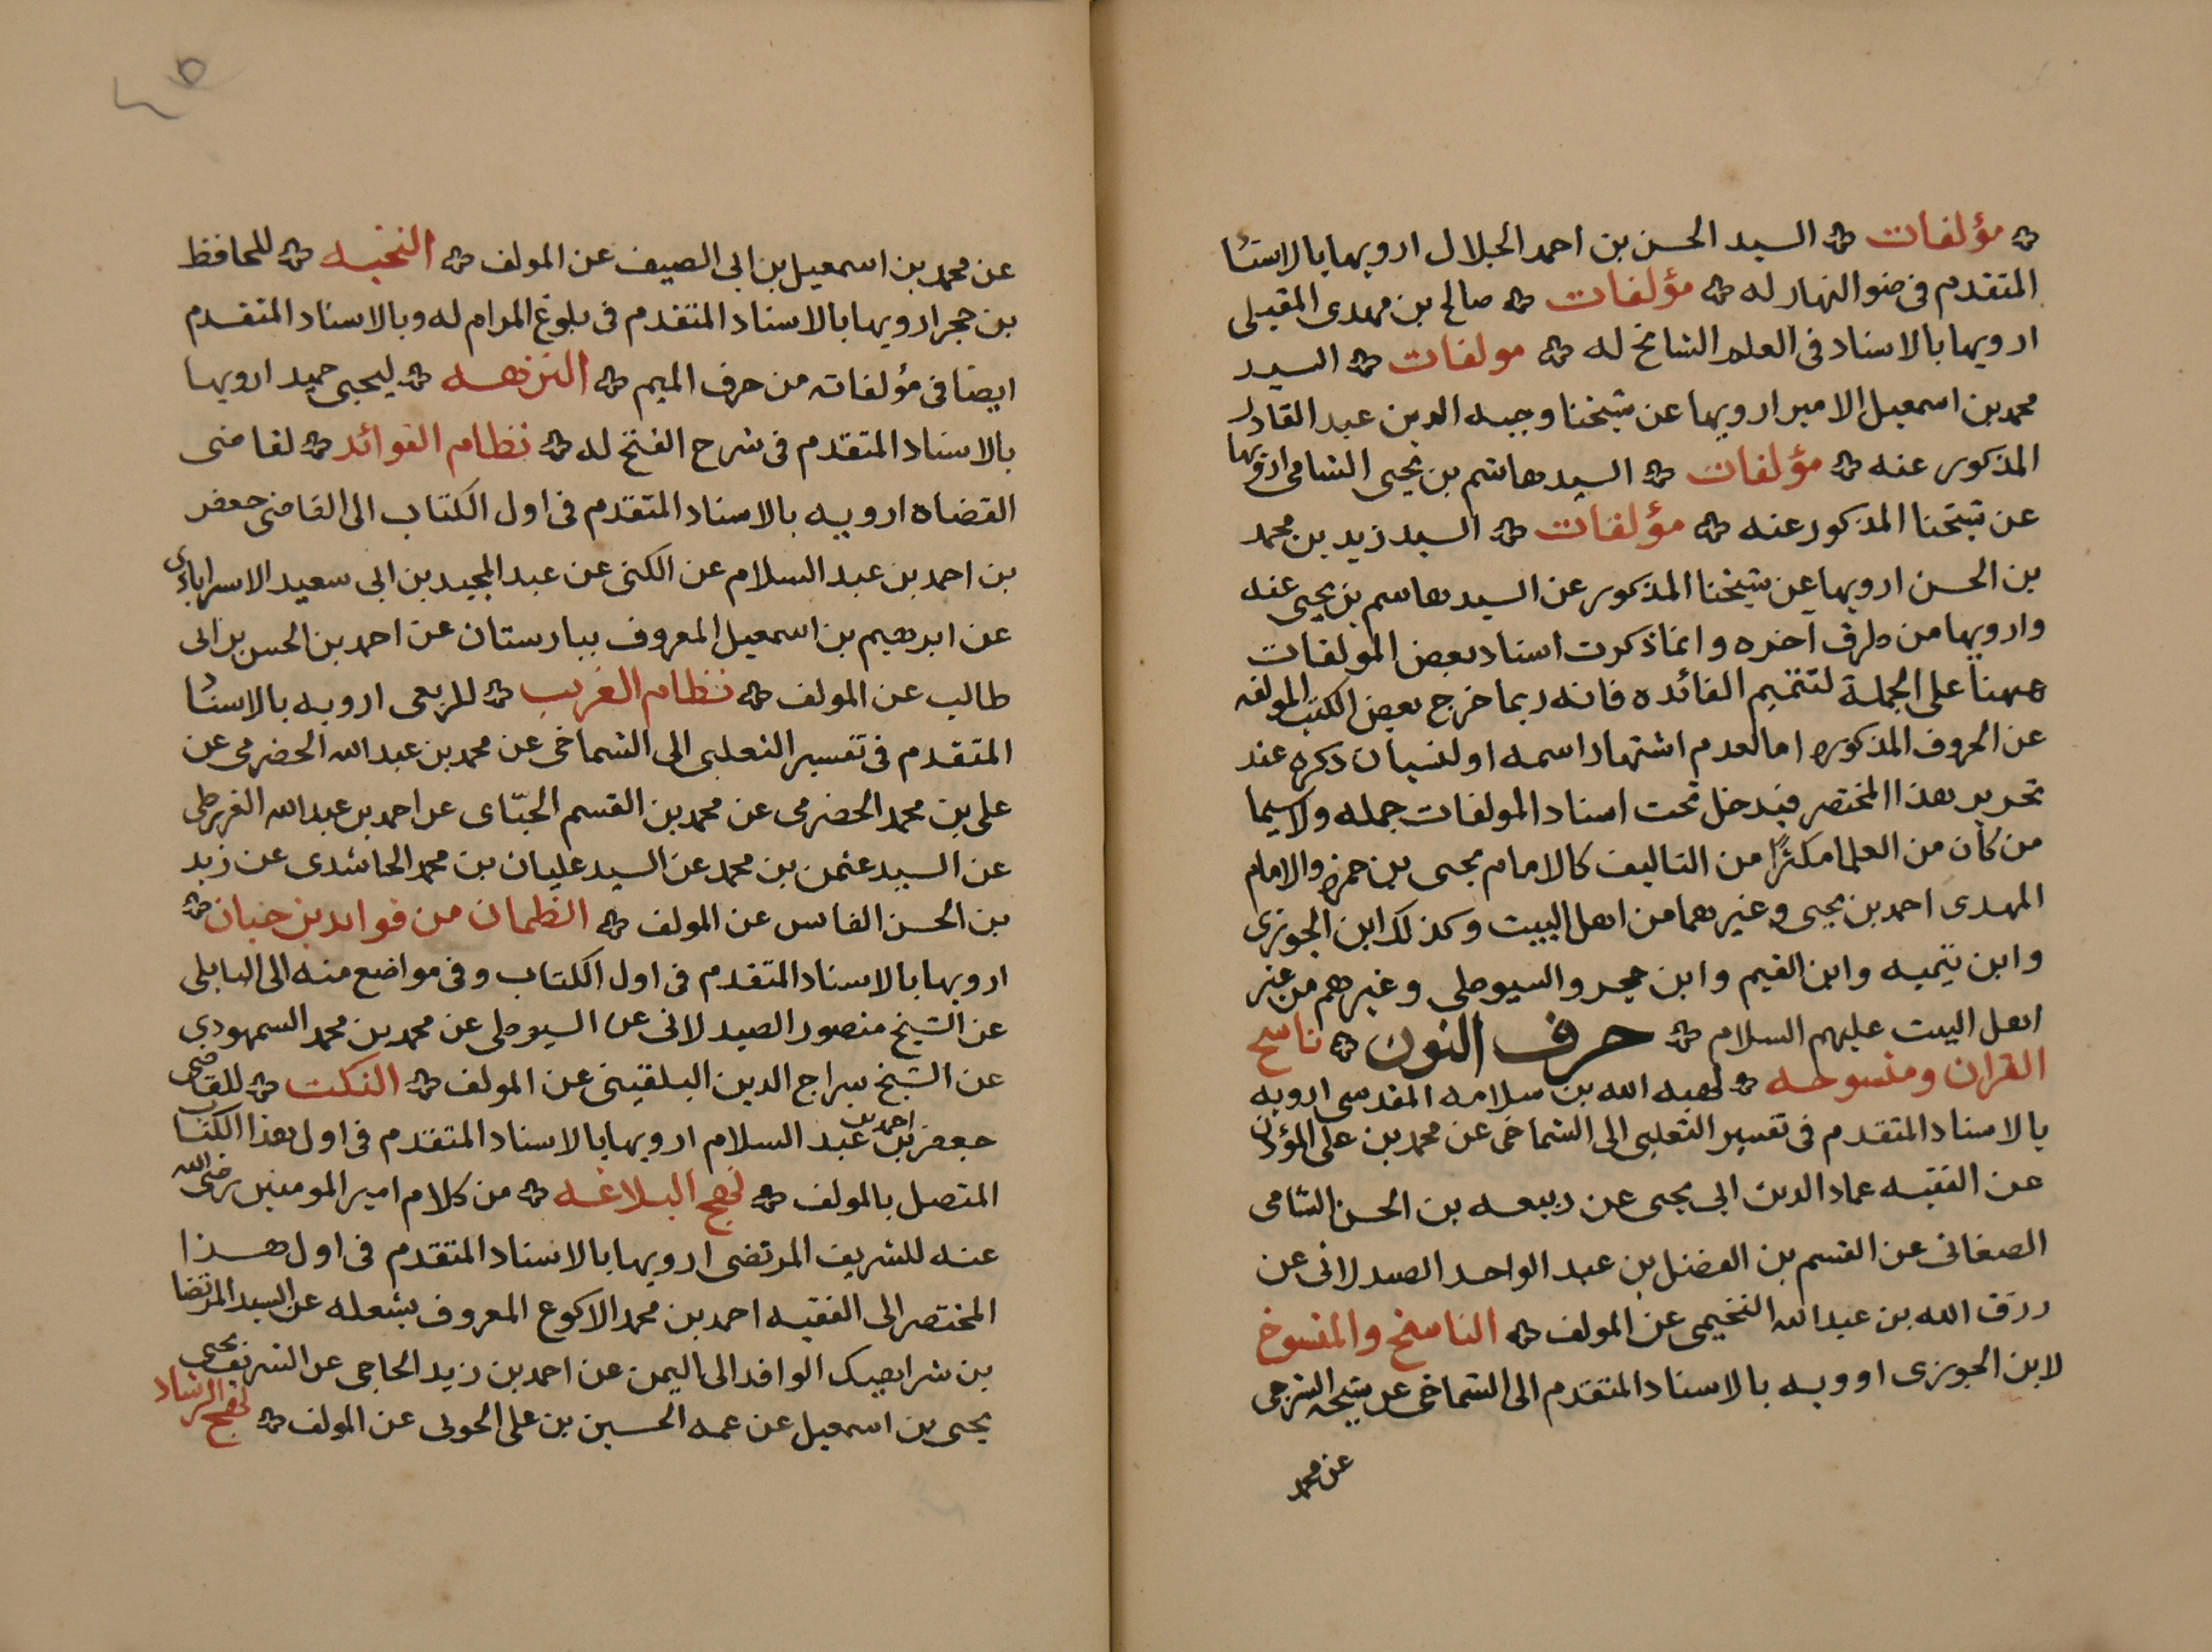 مؤلفات السيد الحسن بن احمد الجلال ارويها بالاسنا
المتقدم فى ضو النهار له مؤلفات صالح بن مهدى المقبلى
ارويها بالاسناد فى العلم الشامخ له مولفات السيد
محمد بن اسمعيل الامير ارويها عن شيخنا وجيه الدين عبد القادر
المذكور عنه مؤلفات السيد هاشم بن يحيى الشامى ارويها
عن شيخنا المذكور عنه مؤلفات السيد زيد بن محمد
بن الحسن ارويها عن شيخنا المذكور عن السيد هاشم بن يحيى عنه
وارويها من طرق اخره وانما ذكرت اسناد بعض المولفات
ههنا على الجملة لتتميم الفائده فانه ربما خرج بعض الكتب المولفه
عن الحروف المذكوره اما لعدم اشتهار اسمه او لنسيان ذكره عند
تحرير هذا المختصر فيدخل تحت اسناد المولفات جمله ولاسيما
من كان من العلما مكثرًا من التاليف كالامام يحيى بن حمزه والامام
المهدى احمد بن يحيى وغيرهما من اهل البيت وكذلك ابن الجوزى
وابن تيميه وابن القيم وابن حجر والسيوطى وغيرهم من غير
اهل البيت عليهم السلام حرف النون ناسخ
القران ومنسوخه لهبه الله بن سلامه المقدسى ارويه
بالاسناد المتقدم فى تفسير الثعلبى الى الشماخى عن محمد بن على المؤذن
عن الفقيه عماد الدين ابى يحيى عن ربيعه بن الحسن الشامى
الصغانى عن القسم بن الفضل بن عبد الواحد الصيدلانى عن
رزق الله بن عبد الله التخيمى عن المولف الناسخ والمنسوخ
لابن الجوزى اوويه بالاسناد المتقدم الى الشماخى عن شيخه الشرجى
عن محمد
عن محمد بن اسمعيل بن ابى الصيف عن المولف النخبه للحافظ
بن حجر ارويها بالاسناد المتقدم فى بلوغ المرام له وبالاسناد المتقدم
ايضا فى مؤلفاته من حرف الميم النزهه ليحيى حميد ارويها
بالاسناد المتقدم فى شرح الفتح له نظام الفوائد لقاضى
القضاه ارويه بالاسناد المتقدم فى اول الكتاب الى القاضى جعفر
بن احمد بن عبد السلام عن الكنى عن عبد المجيد بن ابى سعيد الاسراباذى
عن ابرهيم بن اسمعيل المعروف ببارستان عن احمد بن الحسن بن ابى
طالب عن المولف نظام الغريب للربعى ارويه بالاسناد
المتقدم فى تفسير الثعلبى الى الشماخى عن محمد بن عبد الله الحضرمى عن
على بن محمد الحضرمى عن محمد بن القسم الجبّاى عن احمد بن عبد الله القريظى
عن السيد عثمن بن محمد عن السيد عليان بن محمد الحاشدى عن زيد
بن الحسن الفاس عن المولف الظمان من فوايد بن حبان
ارويها بالاسناد المتقدم فى اول الكتاب وفى مواضع منه الى البابلى
عن الشيخ منصور الصيدلانى عن السيوطى عن محمد بن محمد السمهودى
عن الشيخ سراج الدين البلقينى عن المولف النكت للقاضى
جعفر بن احمد بن عبد السلام ارويها بالاسناد المتقدم فى اول هذا الكتاب
المتصل بالمولف نهج البلاغه من كلام امير المومنين رضى الله
عنه للشريف المرتضى ارويها بالاسناد المتقدم فى اول هذا
المختصر الى الفقيه احمد بن محمد الاكوع المعروف بشعله عن السيد المرتضا
بن شرابيك الوافد الى اليمن عن احمد بن زيد الحاجى عن الشريف يحيى
يحيى بن اسمعيل عن عمه الحسين بن على الحولى عن المولف نهج الرشاد